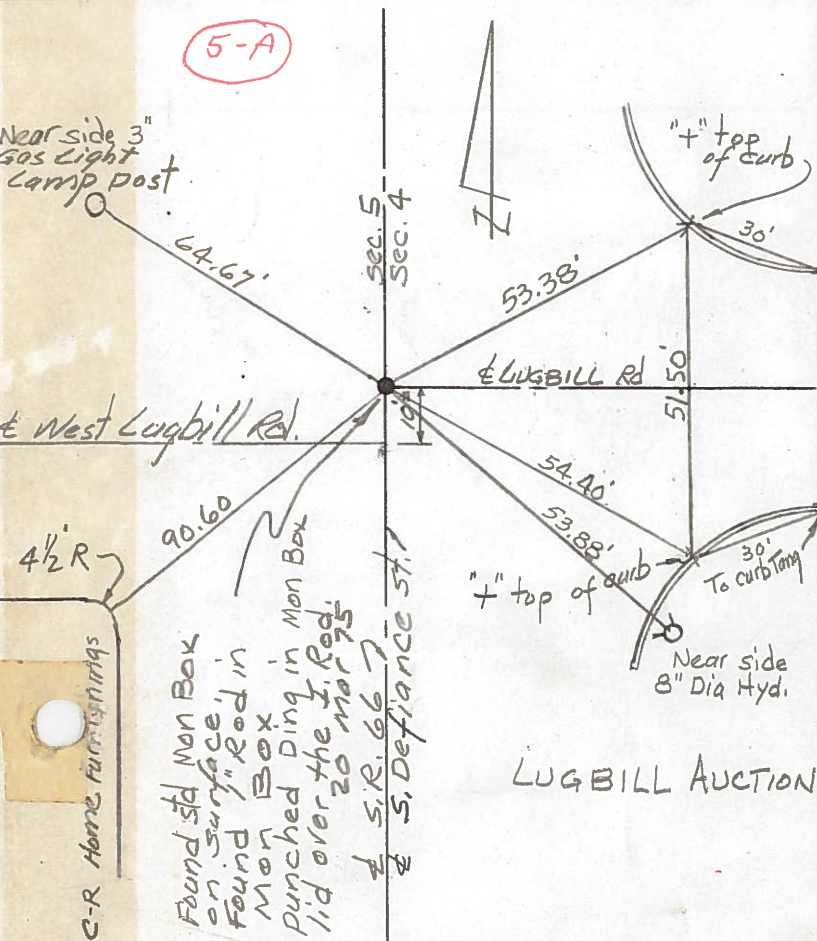 5-A
Near side 3"
Gas Light
Lamp Post
64.67'
Sec. 5
Sec. 4
"+" top
of curb
30'
53.38'
℄ LUGBILL Rd
51.50'
℄ West Lugbill Rd.
54.40'
53.88'
90.60
4½' R
"+" top of curb
30'
To curb Tang
Near side
8" Dia Hyd.
LUGBILL AUCTION
C-R Home Furnishings
Found std Mon Box
on surface.
Found 1" Rod in
Mon Box
Punched Ding in Mon Box
lid over the I. Rod.
20 Mar 75
℄ S.R. 66
℄ S. Defiance St.